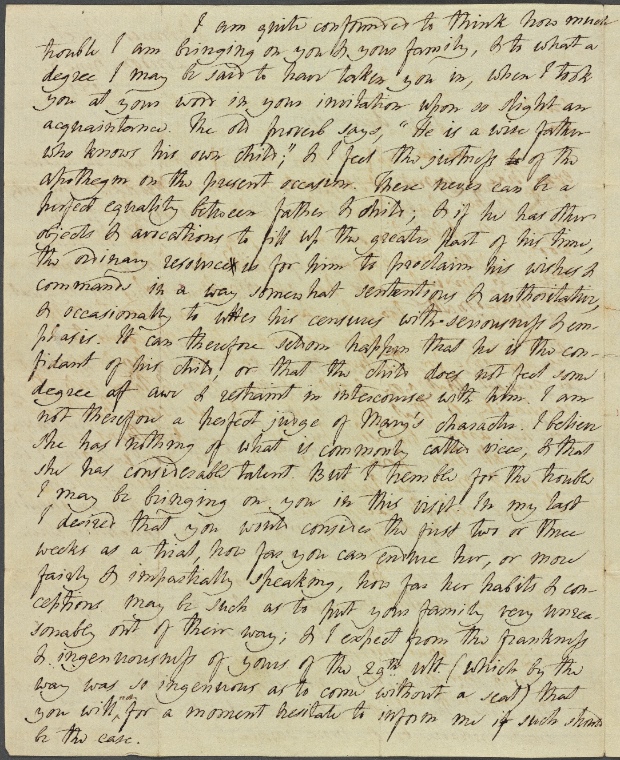 I am quite confounded to think how much
trouble I am bringing on you & your family, & to what a
degree I may be said to have taken you in, when I took
you at your word in your invitation upon so slight an
acquaintance. The old proverb says, "He is a wise father
who knows his own child;" & I feel the justness of the
apothegm on the present occasion. There never can be a
perfect equality between father & child; & if he has other
objects & avocations to fill up the greater part of his time,
the ordinary resource is for him to proclaim his wishes &
commands in a way somewhat sententious & authoritative,
& occasionally to utter his censures with seriousness & em-
phasis. It can therefore seldom happen that he is the con-
fidant of his child, or that the child does not feel some
degree of awe & restraint in intercourse with him. I am
not therefore a perfect judge of Mary's character. I believe
she has nothing of what is commonly called vices, & that
she has considerable talent. But I tremble for the trouble
I may be bringing on you in this visit. In my last
I desired that you would consider the first two or three
weeks as a trial, how far you can endure her, or more
fairly & impartially speaking, how far her habits & con-
ceptions may be such as to put your family very unrea-
sonably out of their way; & I expect from the frankness
& ingenuousness of yours of the 29th ult (which by the
way was so ingenuous as to come without a seal) that
you will not for a moment hesitate to inform me if such should
be the case.